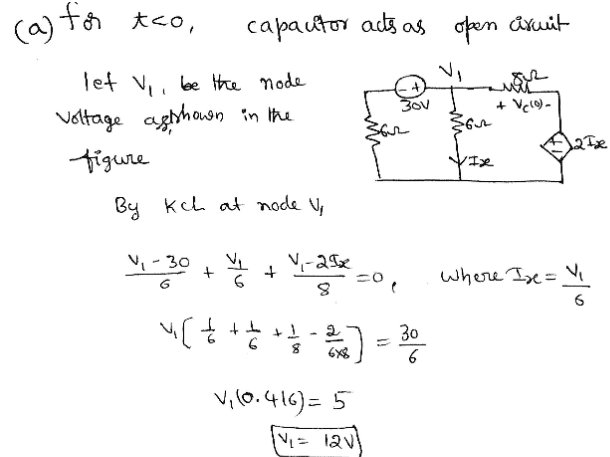 (a) for t<0, capacitor acts as open circuit
let V₁, be the node
voltage as shown in the
figure
V₁
8Ω
- +
30V
+ Vc(0) -
6Ω
6Ω
Ix
+
-
2Ix
By KCL at node V₁
(V₁ - 30)/6 + V₁/6 + (V₁ - 2Ix)/8 = 0, where Ix = V₁/6
V₁[1/6 + 1/6 + 1/8 - 2/(6×8)] = 30/6
V₁(0.416) = 5
V₁ = 12V